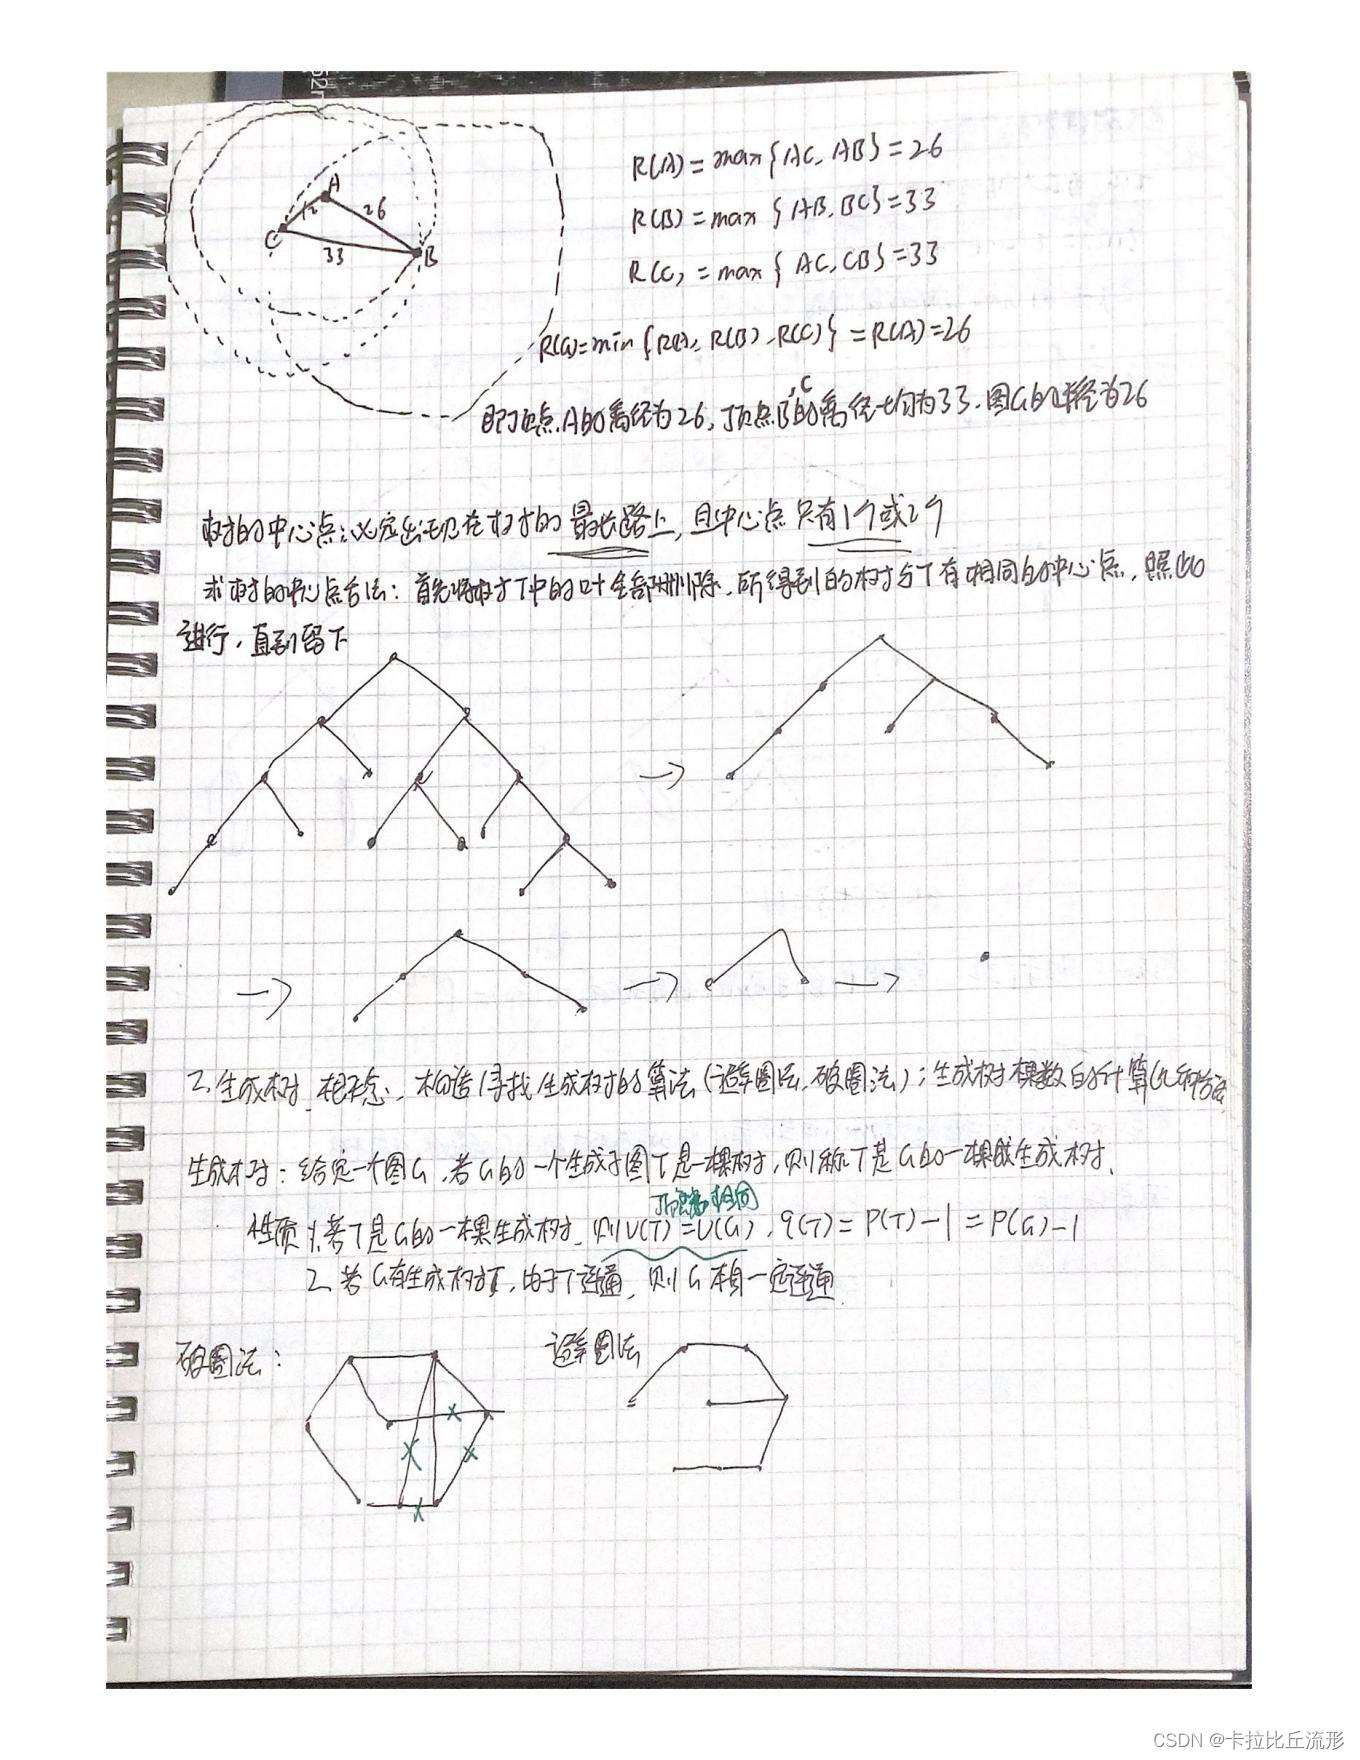 52
A
12
26
C
33
B
R(A)=max{AC,AB}=26
R(B)=max{AB,BC}=33
R(C)=max{AC,CB}=33
R(G)=min{R(A),R(B),R(C)}=R(A)=26
即顶点A的离径为26,顶点B,C的离径均为33.图G的半径为26
树的中心点:必定出现在树的最长路上,且中心点只有1个或2个
求树的中心点方法:首先将树T中的叶全部删除,所得到的树与T有相同的中心点,照此
进行,直到留下
二.生成树、概念、构造/寻找生成树的算法(避圈法、破圈法);生成树棵数的计算
生成树:给定一个图G,若G的一个生成子图T是一棵树,则称T是G的一棵生成树.
顶点数相同
性质1.若T是G的一棵生成树,则V(T)=V(G),q(T)=P(T)-1=P(G)-1
2.若G有生成树T,由于T连通,则G本身一定连通
破圈法:
避圈法
CSDN @卡拉比丘流形